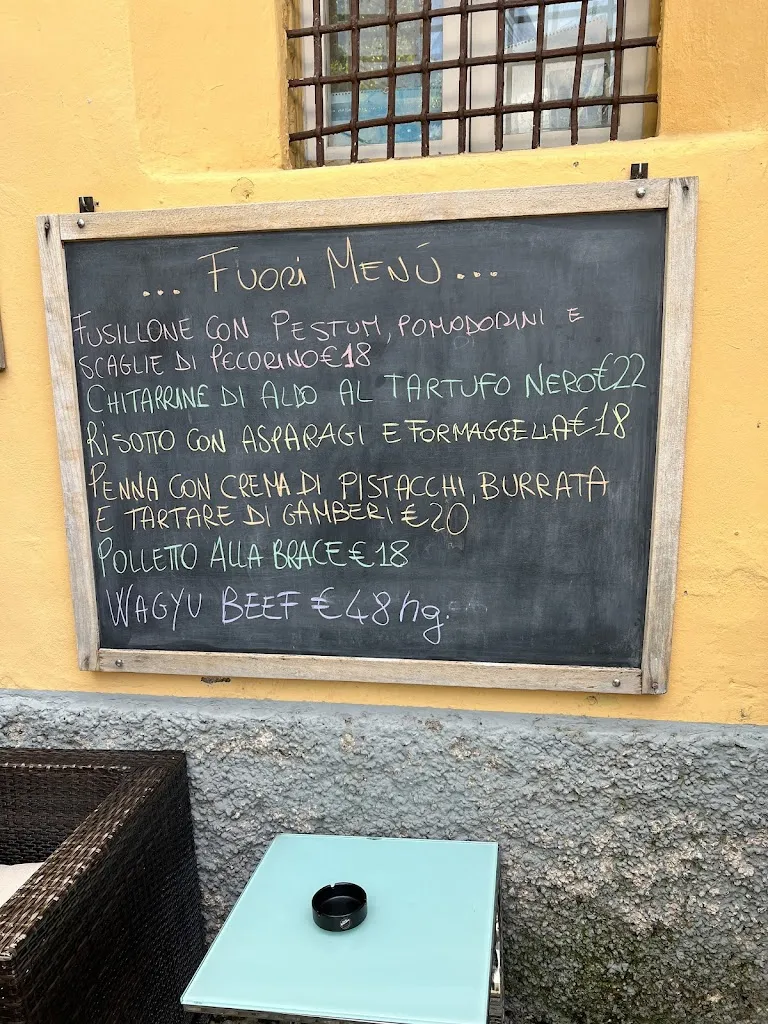 ... FUORI MENÚ ...
FUSILLONE CON PESTUM, POMODORINI E
SCAGLIE DI PECORINO €18
CHITARRINE DI ALDO AL TARTUFO NERO €22
RISOTTO CON ASPARAGI E FORMAGGELLA €18
PENNA CON CREMA DI PISTACCHI, BURRATA
E TARTARE DI GAMBERI €20
POLLETTO ALLA BRACE €18
WAGYU BEEF €48 hg.